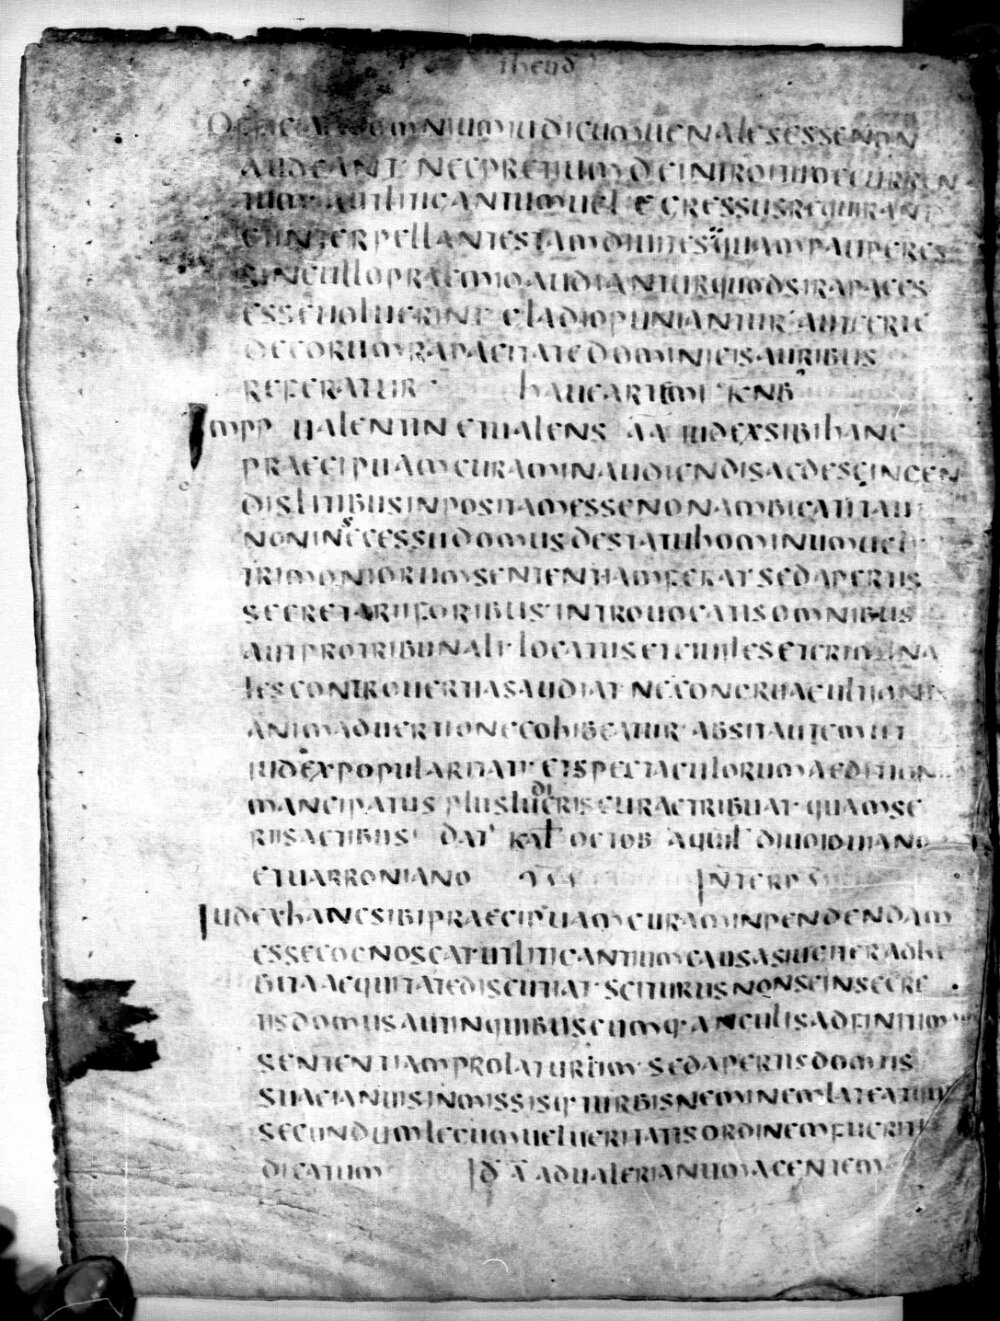 theud
officia omnium iudicum uenales esse non
audeant nec pretium de introitu recurren
tium aut litigantium uel egressus requirant
et interpellantes tam diuites quam pauperes
sine ullo praemio audiantur quod si rapaces
esse uoluerint gladio puniantur aut ferit
de eorum rapacitate dominicis auribus
referatur
Impp ualentin et ualens aa iudex sibi hanc
praecipuam curam in audiendis ac descingen
dis litibus inpositam esse non ambigat ita ut
non in secessu domus de statu hominum uel
trimoniorum sententiam ferat sed apertis
secretarii foribus intro uocatis omnibus
aut pro tribunali locatus et ciuiles et crimina
les controuersias audiat ne congrua cultionis
animaduertione cohibeatur absit autem ut
iudex popularitati et spectaculorum aeditione
mancipatus plus ludicris curae tribuat quam se
riis actibus dat kal octob aquil diuo iouiano
et uarroniano interp
Iudex hanc sibi praecipuam curam inpendendam
esse cognoscat ut litigantium causas iugiter adhi
bita aequitate discutiat sciturus non se in secre
tis domus aut in quibuscumq angulis adfinitium
sententiam prolaturum sed apertis domus
suae ianuis in omissisq turbis nemine lateat ut
secundum legum uel ueritatis ordinem fuerit iu
dicatum Id a ad ualerianum agentem